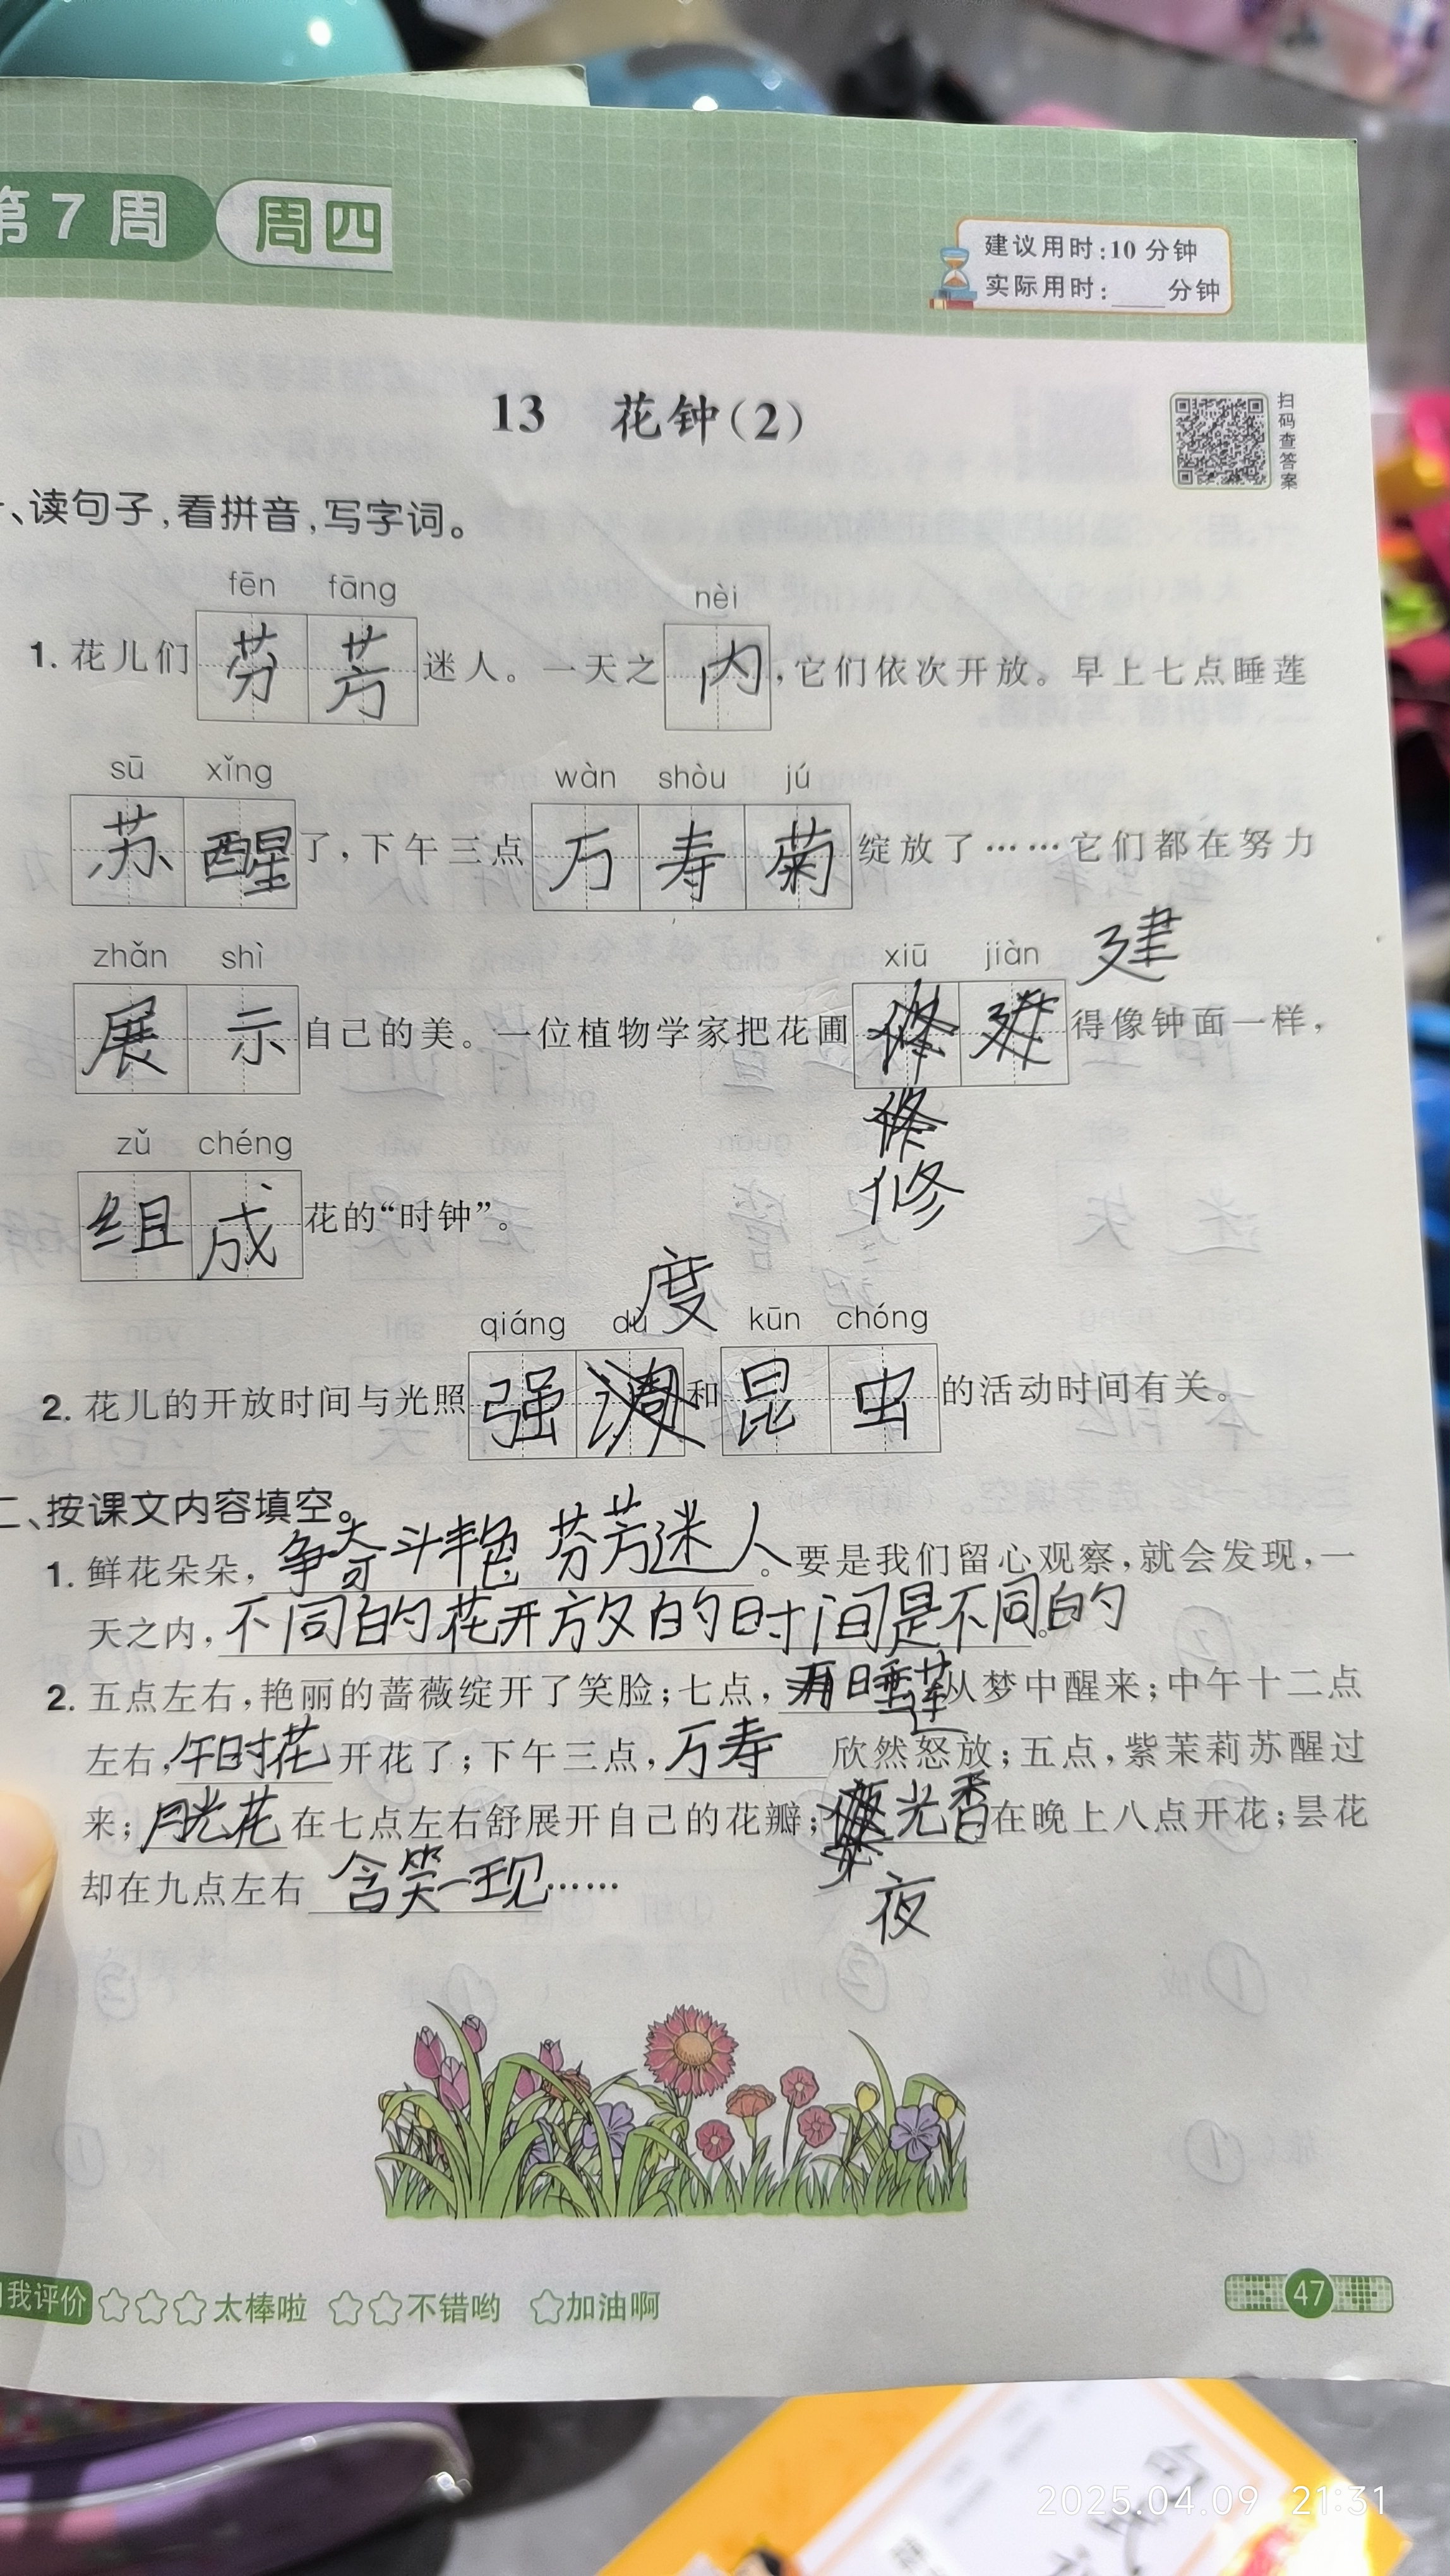 第7周 周四
建议用时:10分钟
实际用时:____分钟
13 花钟(2)
扫码查答案
一、读句子,看拼音,写字词。
fēn fāng nèi
1. 花儿们芬芳迷人。一天之内,它们依次开放。早上七点睡莲
sū xǐng wàn shòu jú
苏醒了,下午三点万寿菊绽放了……它们都在努力
zhǎn shì xiū jiàn 建
展示自己的美。一位植物学家把花圃得像钟面一样,
修
zǔ chéng
组成花的“时钟”。
度
qiáng dù kūn chóng
2. 花儿的开放时间与光照强和昆虫的活动时间有关。
二、按课文内容填空。
1. 鲜花朵朵,争奇斗艳,芬芳迷人。要是我们留心观察,就会发现,一
天之内,不同的花开放的时间是不同的。
2. 五点左右,艳丽的蔷薇绽开了笑脸;七点,睡莲从梦中醒来;中午十二点
左右,午时花开花了;下午三点,万寿欣然怒放;五点,紫茉莉苏醒过
来;月光花在七点左右舒展开自己的花瓣;光香在晚上八点开花;昙花
夜
却在九点左右含笑一现……
自我评价 ☆☆☆太棒啦 ☆☆不错哟 ☆加油啊
47
2025.04.09 21:31